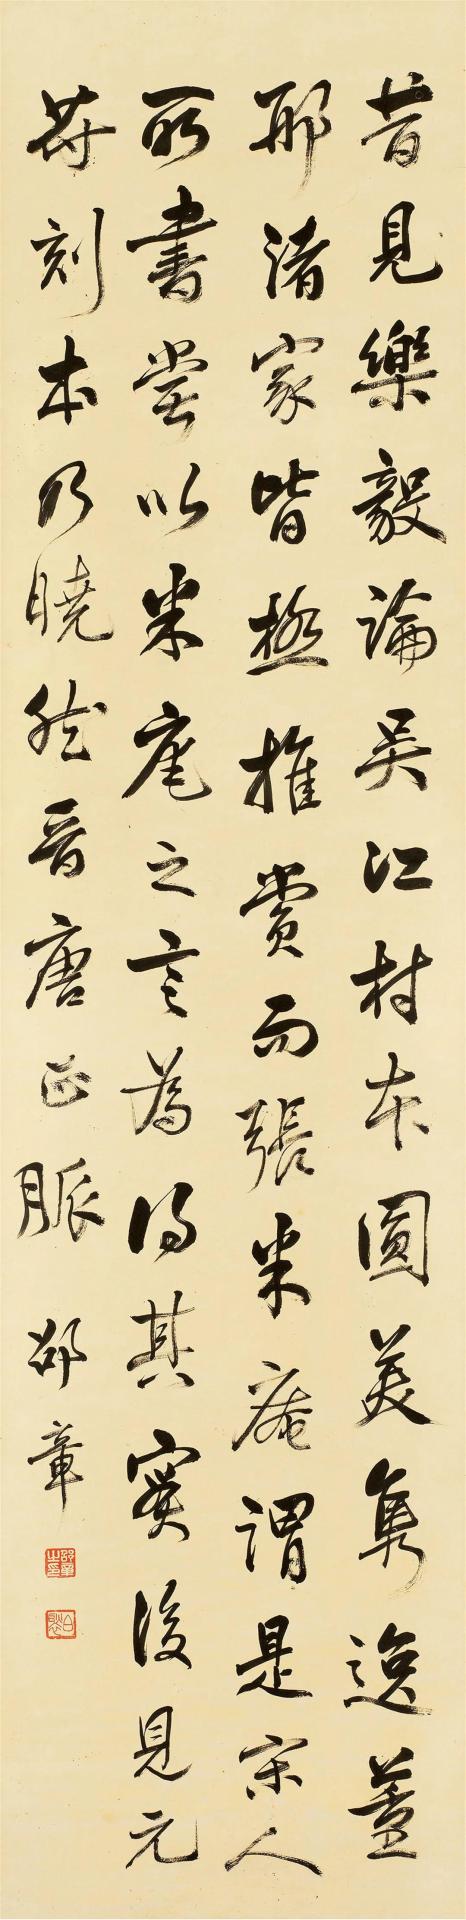 昔見樂毅論吳江村本圓美雋逸蓋
邢渚家皆極推賞而張米庵謂是宋人
所書嘗以米庵之言為得其實後見元
祐刻本乃曉然晉唐正脈 邵章